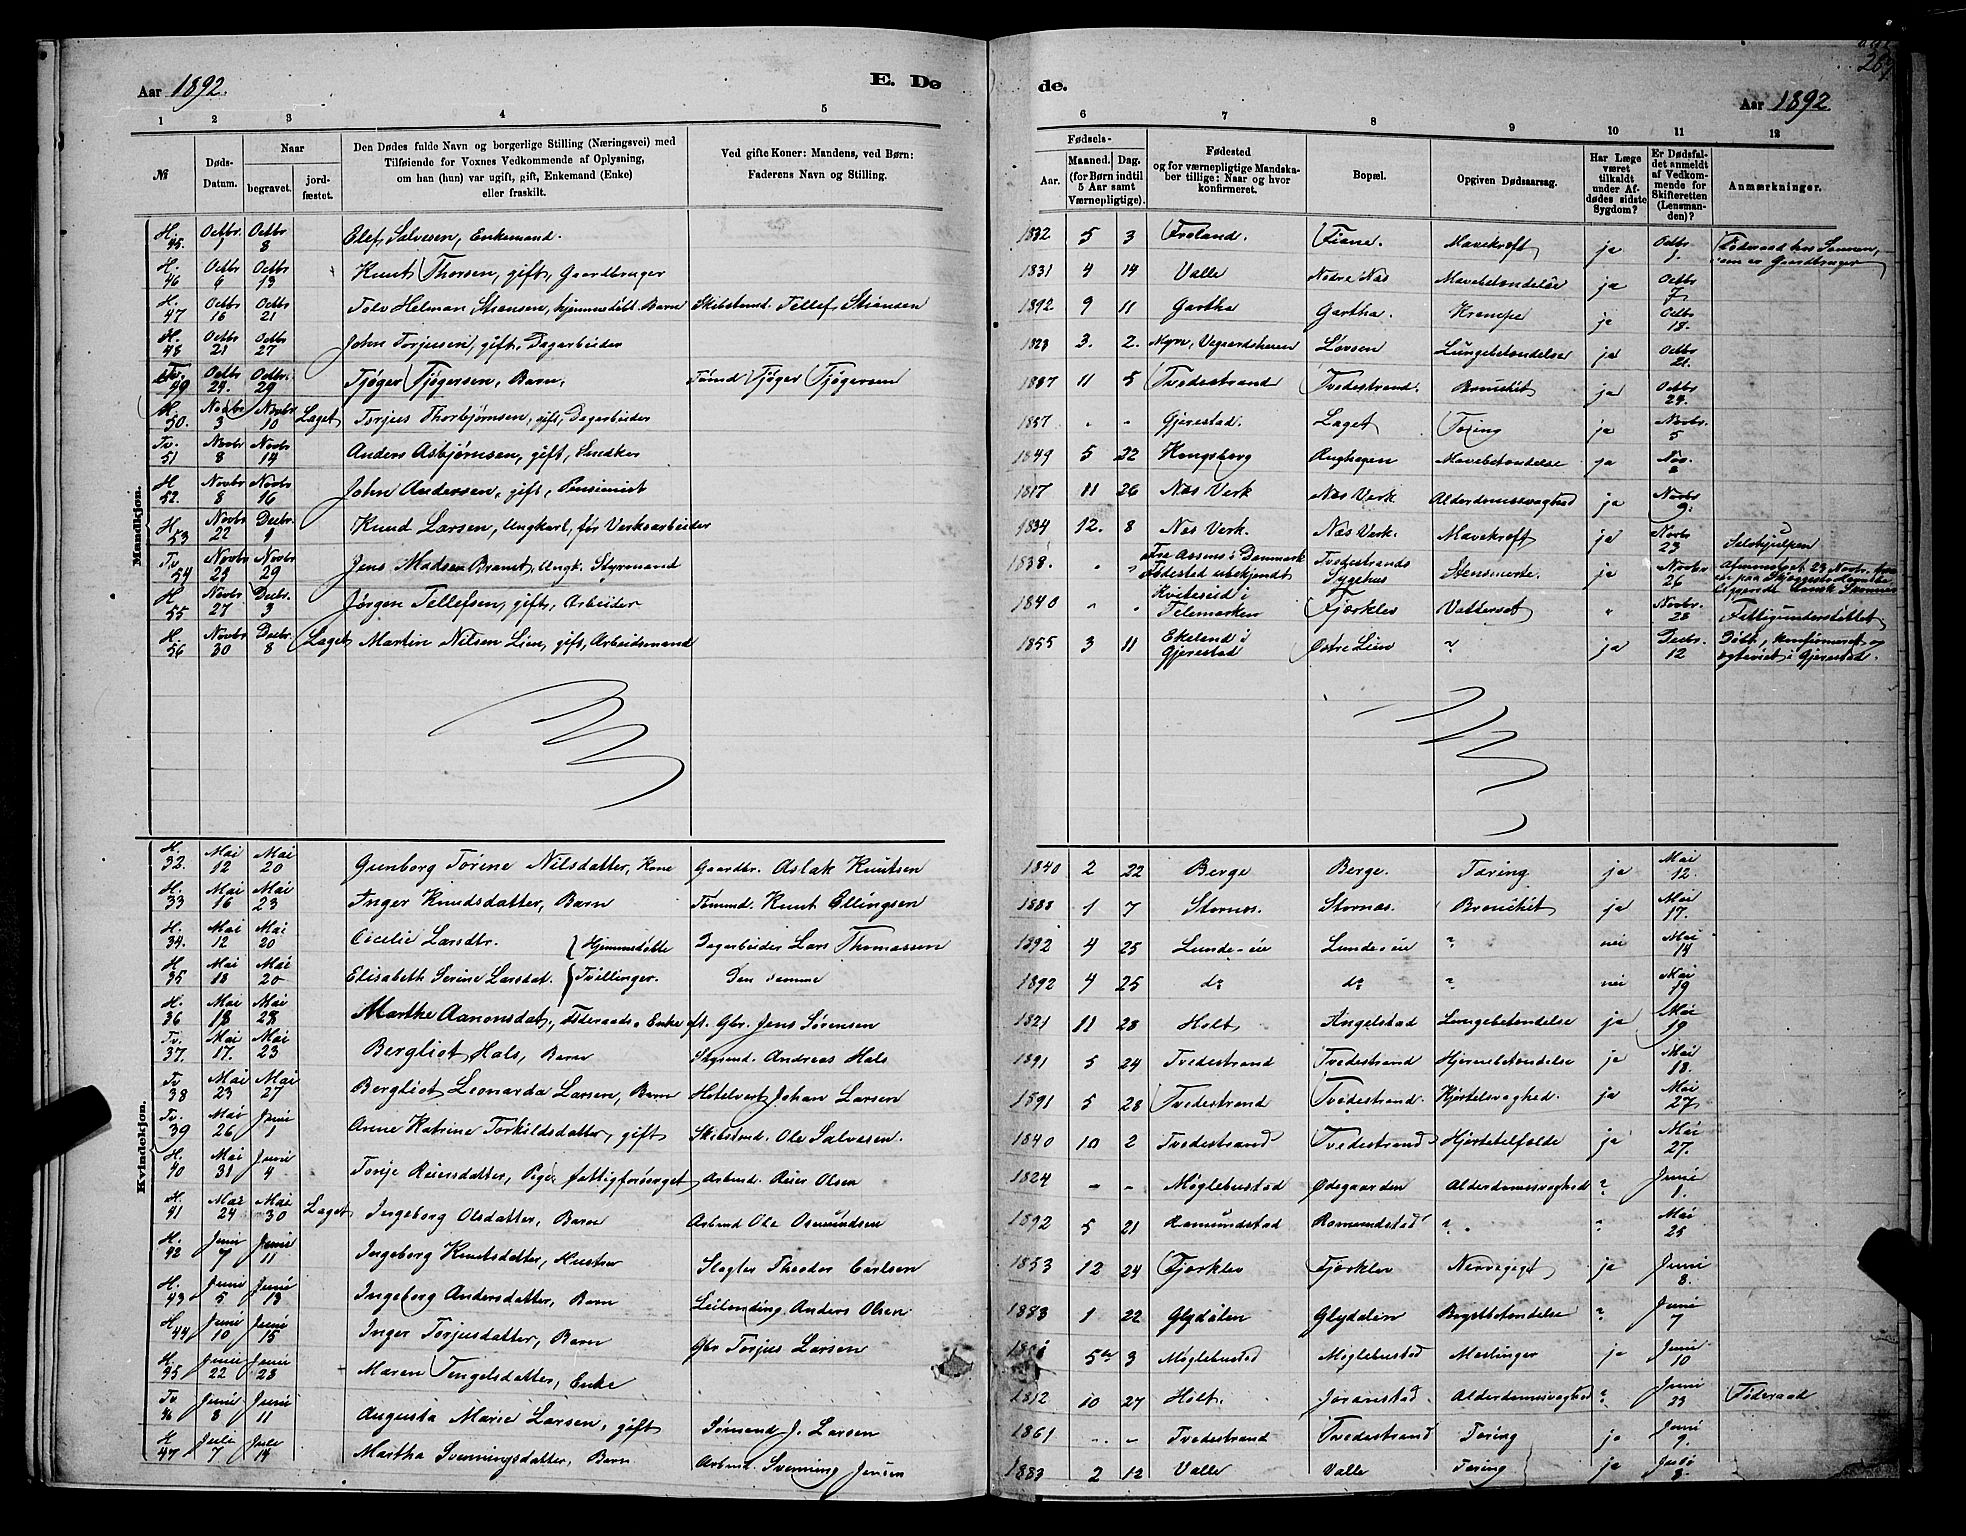 267
Aar 1892. E. Dø
de. Aar 1892
1 2 3 4 5
6 7 8 9 10 11 12
№ Døds-Datum. Naar begravet. jordfæstet. Den Dødes fulde Navn og borgerlige Stilling (Næringsvei) med Tilføiende for Voxnes Vedkommende af Oplysning, om han (hun) var ugift, gift, Enkemand (Enke) eller fraskilt. Ved gifte Koner: Mandens, ved Børn: Faderens Navn og Stilling.
Fødsels- Aar. Maaned. Dag. (for Børn indtil 5 Aar samt Værnepligtige). Fødested og for værnepligtige Mandskaber tillige: Naar og hvor konfirmeret. Bopæl. Opgiven Dødsaarsag. Har Læge været tilkaldt under Afdødes sidste Sygdom? Er Dødsfaldet anmeldt af Vedkommende for Skifteretten (Lensmanden)? Anmærkninger.
Mandkjøn.
H. 45. Octbr. 1 Octbr 8 Elef Salvesen, Enkemand. 1832 5 3 Froland. Fiane. Mavekræft ja Octbr 1. Føderaad hos Sønnen, som er Gaardbruger
H. 46 Octbr 6 Octbr 13 Knut Thorsen, gift, Gaardbruger 1831 4 14 Valle Nedre Næs Mavebetændelse ja Octbr 7
H. 47 Octbr 16 Octbr 21 Tolv Helman Stiansen, hjemmedøbt Barn Skibstmd. Tellef Stiansen 1892 9 11 Gartha Gartha. Krampe ja Octbr 18.
H. 48 Octbr 21 Octbr 27 John Torjussen, gift, Dagarbeider 1823 3. 2. Myre, Vegaardsheien Løvsen Lungebetændelse ja Octbr 21.
Tv. 49 Octbr 24. Octbr. 29 Tjøger Tjøgersen, Barn, Tømmd Tjøger Tjøgersen 1887 11 5 Tvedestrand Tvedestrand. Bronchit ja Octbr 24.
H 50. Novbr 3 Novbr 10 Laget Torjus Thorbjørnsen, gift, Dagarbeider 1857 " " Gjerestad. Laget Tæring ja Novbr. 5
Tv. 51 Novbr 8 Novbr 14 Anders Asbjørnsen, gift, Snedker 1849 5 22 Kongsberg Mavebetændelse ja Nov.
H 52. Novbr 8 Novbr 16 John Andersen, gift, Pensionist 1817 11 26 Næs Verk Næs Verk Alderdomssvaghed ja Novbr 9.
H. 53 Novbr 22 Decbr. 1 Knud Larsen, Ungkarl, før Verksarbeider 1834 12. 8 Næs Verk. Næs Verk. Mavekræft ja Novbr 23 Selvhjulpen
Tv 54 Novbr 23 Novbr 29 Jens Madsen Brandt, Ungk. Styrmand 1838. " " Fra Assens i Danmark Fødested ubekjendt Tvedestrands Sygehus ja Novbr 26 Afmønstret 23 Novbr.
H 55 Novbr. 27 Decbr. 3 Jørgen Tellefsen, gift, Arbeider 1840 " " Kviteseid i Telemarken Fjærklev Vattersot " Novbr. 28 Fattigunderstøttet
H. 56 Novbr 30 Decbr. 8 Laget Martin Nilsen Lien, gift, Arbeidsmand 1855 3 11 Ekeland i Gjerestad Østre Lien " ja Decbr. 12 Døbt, konfirmeret og egteviet i Gjerestad.
Kvindekjøn.
H. 32. Mai 12 Mai 20 Gunborg Torine Nilsdatter, Kone Gaardbr. Aslak Knutsen 1840 2 22 Berge Berge. Tæring ja Mai 12.
H. 33 Mai 16 Mai 23 Inger Knudsdatter, Barn Tømmd. Knut Ellingsen 1888 1 7 Stornæs. Stornæs. Bronchit ja Mai 17.
H. 34. Mai 12 Mai 20 Cecilie Larsdtr. Hjemmedøbte Dagarbeider Lars Thomassen 1892 4 25 Lunde-eie Lunde-eie " nei Mai 14
H 35 Mai 18 Mai 20 Elisabeth Serine Larsdat. Tvillinger. Den samme 1892 4 25 do do " nei Mai 19
H. 36 Mai 18 Mai 28 Marthe Aanonsdat., Føderaads-Enke ft. Gbr. Jens Sørensen 1821 11 28 Holt Angelstad Lungebetændelse ja Mai 19
Tv. 37. Mai 17. Mai 23 Bergliot Hals, Barn Styrmd. Andreas Hals 1891 5 24 Tvedestrand Tvedestrand Hjernebetændelse ja Mai 18.
Tv 38 Mai 23 Mai 27 Bergliot Leonarda Larsen, Barn Hotelvert Johan Larsen 1891 5 28 Tvedestrand Tvedestrand. Kjertelsvaghed. ja Mai 27
Tv. 39 Mai 26 Juni 1 Anne Katrine Torkildsdatter, gift Skibstmd. Ole Salvesen. 1840 10 2 Tvedestrand Tvedestrand Hjertetilfælde ja Mai 27.
H. 40 Mai 31 Juni 4 Tonje Reiersdatter, Pige fattigforsørget Arbmd. Reier Olsen 1824 - - Møglebustad Ødegaarden Alderdomssvaghed " Juni 1.
H 41 Mai 24 Mai 30 Laget Ingeborg Olsdatter, Barn Arbmd Ole Osmundsen 1892 5 21 Romundstad Romundstad " " Mai 25
H. 42 Juni 7 Juni 11 Ingeborg Knutsdatter, Hustru Slagter Theodor Carlsen 1853 12 24 Fjærklev Fjærklev Nervegigt ja Juni 8.
H. 43 Juni 5 Juni 13 Ingeborg Andersdatter, Barn Leilending Anders Olsen 1883 1 22 Glydalen Glydalen Brystbetændelse " Juni 7
H 44 Juni 10 Juni 15 Inger Torjusdatter, Barn Gbr Torjus Larsen 5 3 Møglebustad Møglebustad Meslinger ja Juni 10
H. 45 Juni 22 Juni 28 Maren Tengelsdatter, Enke 1812 10 27 Holt. Joranstad Alderdomssvaghed " Juni 23 Føderaad
Tv. 46 Juni 8 Juni 11 Augusta Marie Larsen, gift Sømand J. Larsen 1861 - - Tvedestrand Tvedestrand Tæring ja Juni 9.
H 47 Juli 7 Juli 14 Martha Svenningsdatter, Barn Arbmd. Svenning Jensen 1883 2 12 Valle Valle Tæring ja Juli 8.